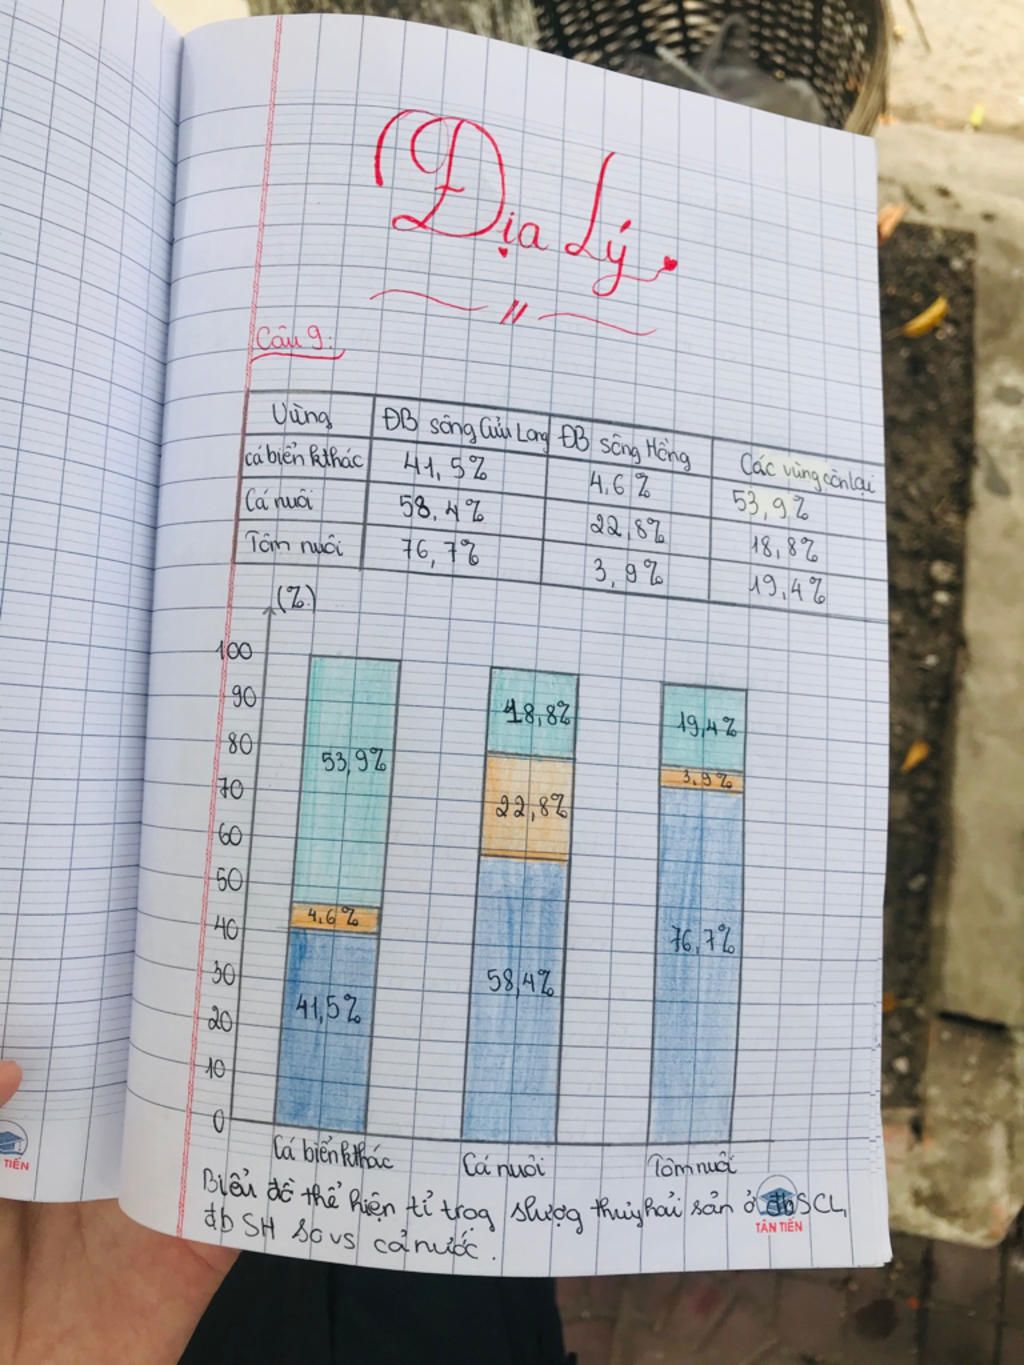 Địa Lý
Câu 9:
Vùng ĐB sông Cửu Long ĐB sông Hồng Các vùng còn lại
cá biển k.thác 41,5% 4,6% 53,9%
Cá nuôi 58,4% 22,8% 18,8%
Tôm nuôi 76,7% 3,9% 19,4%
(%)
100
90
80
70
60
50
40
30
20
10
0
53,9%
4,6%
41,5%
18,8%
22,8%
58,4%
19,4%
3,9%
76,7%
Cá biển k.thác Cá nuôi Tôm nuôi
Biểu đồ thể hiện tỉ trọg slượg thủy hải sản ở đbSCL,
đb SH so vs cả nước.
TÂN TIẾN
TIẾN